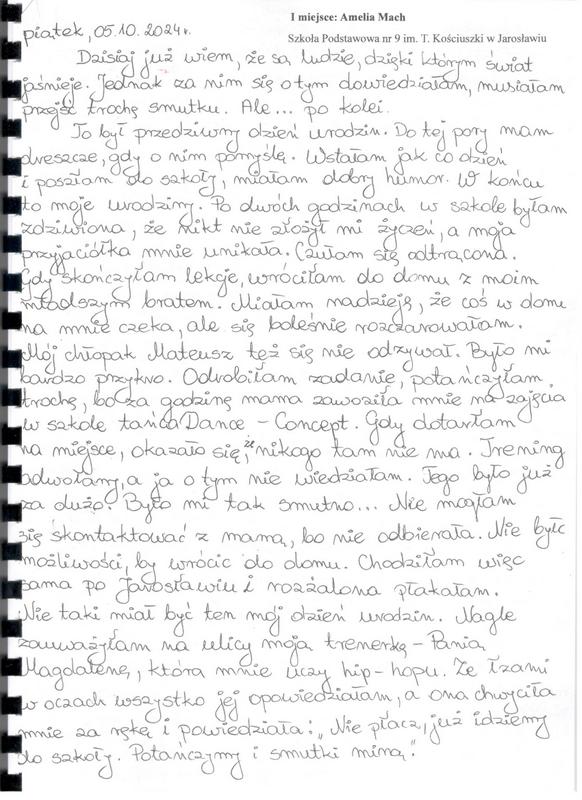 I miejsce: Amelia Mach
piątek, 05.10.2024r.
Szkoła Podstawowa nr 9 im. T. Kościuszki w Jarosławiu
Dzisiaj już wiem, że są ludzie, dzięki którym świat
jaśnieje. Jednak za nim się o tym dowiedziałam, musiałam
przejść trochę smutku. Ale... po kolei.
To był przedziwny dzień urodzin. Do tej pory mam
dreszcze, gdy o nim pomyślę. Wstałam jak co dzień
i poszłam do szkoły, miałam dobry humor. W końcu
to moje urodziny. Po dwóch godzinach w szkole byłam
zdziwiona, że nikt nie złożył mi życzeń, a moja
przyjaciółka mnie unikała. Czułam się odtrącona.
Gdy skończyłam lekcje, wróciłam do domu z moim
młodszym bratem. Miałam nadzieję, że coś w domu
na mnie czeka, ale się boleśnie rozczarowałam.
Mój chłopak Mateusz też się nie odzywał. Było mi
bardzo przykro. Odrobiłam zadanie, potańczyłam
trochę, bo za godzinę mama zawoziła mnie na zajęcia
w szkole tańca Dance - Concept. Gdy dotarłam
na miejsce, okazało się, że nikogo tam nie ma. Trening
odwołany, a ja o tym nie wiedziałam. Tego było już
za dużo. Było mi tak smutno... Nie mogłam
się skontaktować z mamą, bo nie odbierała. Nie było
możliwości, by wrócić do domu. Chodziłam więc
sama po Jarosławiu i rozżalona płakałam.
Nie taki miał być ten mój dzień urodzin. Nagle
zauważyłam na ulicy moją trenerkę - Panią
Magdalenę, która mnie uczy hip-hopu. Ze łzami
w oczach wszystko jej opowiedziałam, a ona chwyciła
mnie za rękę i powiedziała: „Nie płacz, już idziemy
do szkoły. Potańczymy i smutki miną".